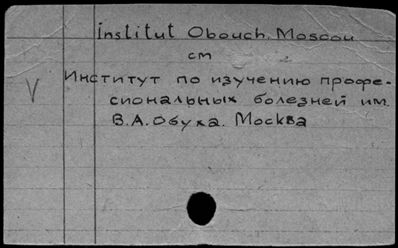 Institut Obouch. Moscou
см
V Институт по изучению профе-
сиональных болезней им.
В.А.Обуха. Москва